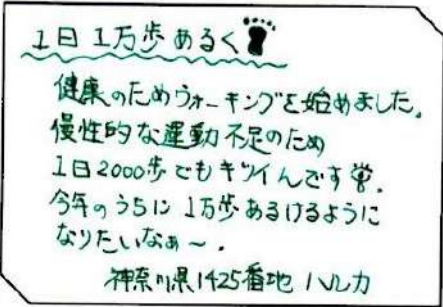 1日1万歩あるく
健康のためウォーキングを始めました。
慢性的な運動不足のため
1日2000歩でもキツイんです。
今年のうちに1万歩あるけるように
なりたいなぁ〜。
神奈川県1425番地 ハルカ